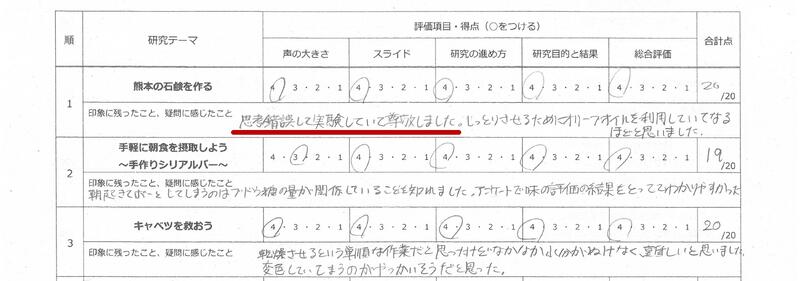 順 研究テーマ 評価項目・得点（○をつける） 合計点
声の大きさ スライド 研究の進め方 研究目的と結果 総合評価
1 熊本の石鹸を作る 4・3・2・1 4・3・2・1 4・3・2・1 4・3・2・1 4・3・2・1 20/20
印象に残ったこと、疑問に感じたこと 思考錯誤して実験していて尊敬しました。しっとりさせるためにオリーブオイルを利用していてなる
ほどと思いました。
2 手軽に朝食を摂取しよう 4・3・2・1 4・3・2・1 4・3・2・1 4・3・2・1 4・3・2・1 19/20
～手作りシリアルバー～
印象に残ったこと、疑問に感じたこと
朝起きてぼーとしてしまうのはブドウ糖の量が関係していることを知れました。アンケートで味の評価の結果をとっててわかりやすかった
3 キャベツを救おう 4・3・2・1 4・3・2・1 4・3・2・1 4・3・2・1 4・3・2・1 20/20
印象に残ったこと、疑問に感じたこと 乾燥させるという単順な作業だと思ったけどなかなか水分がぬけなく、難しいと思いました
変色していてまうのがやっかいそうだと思った。